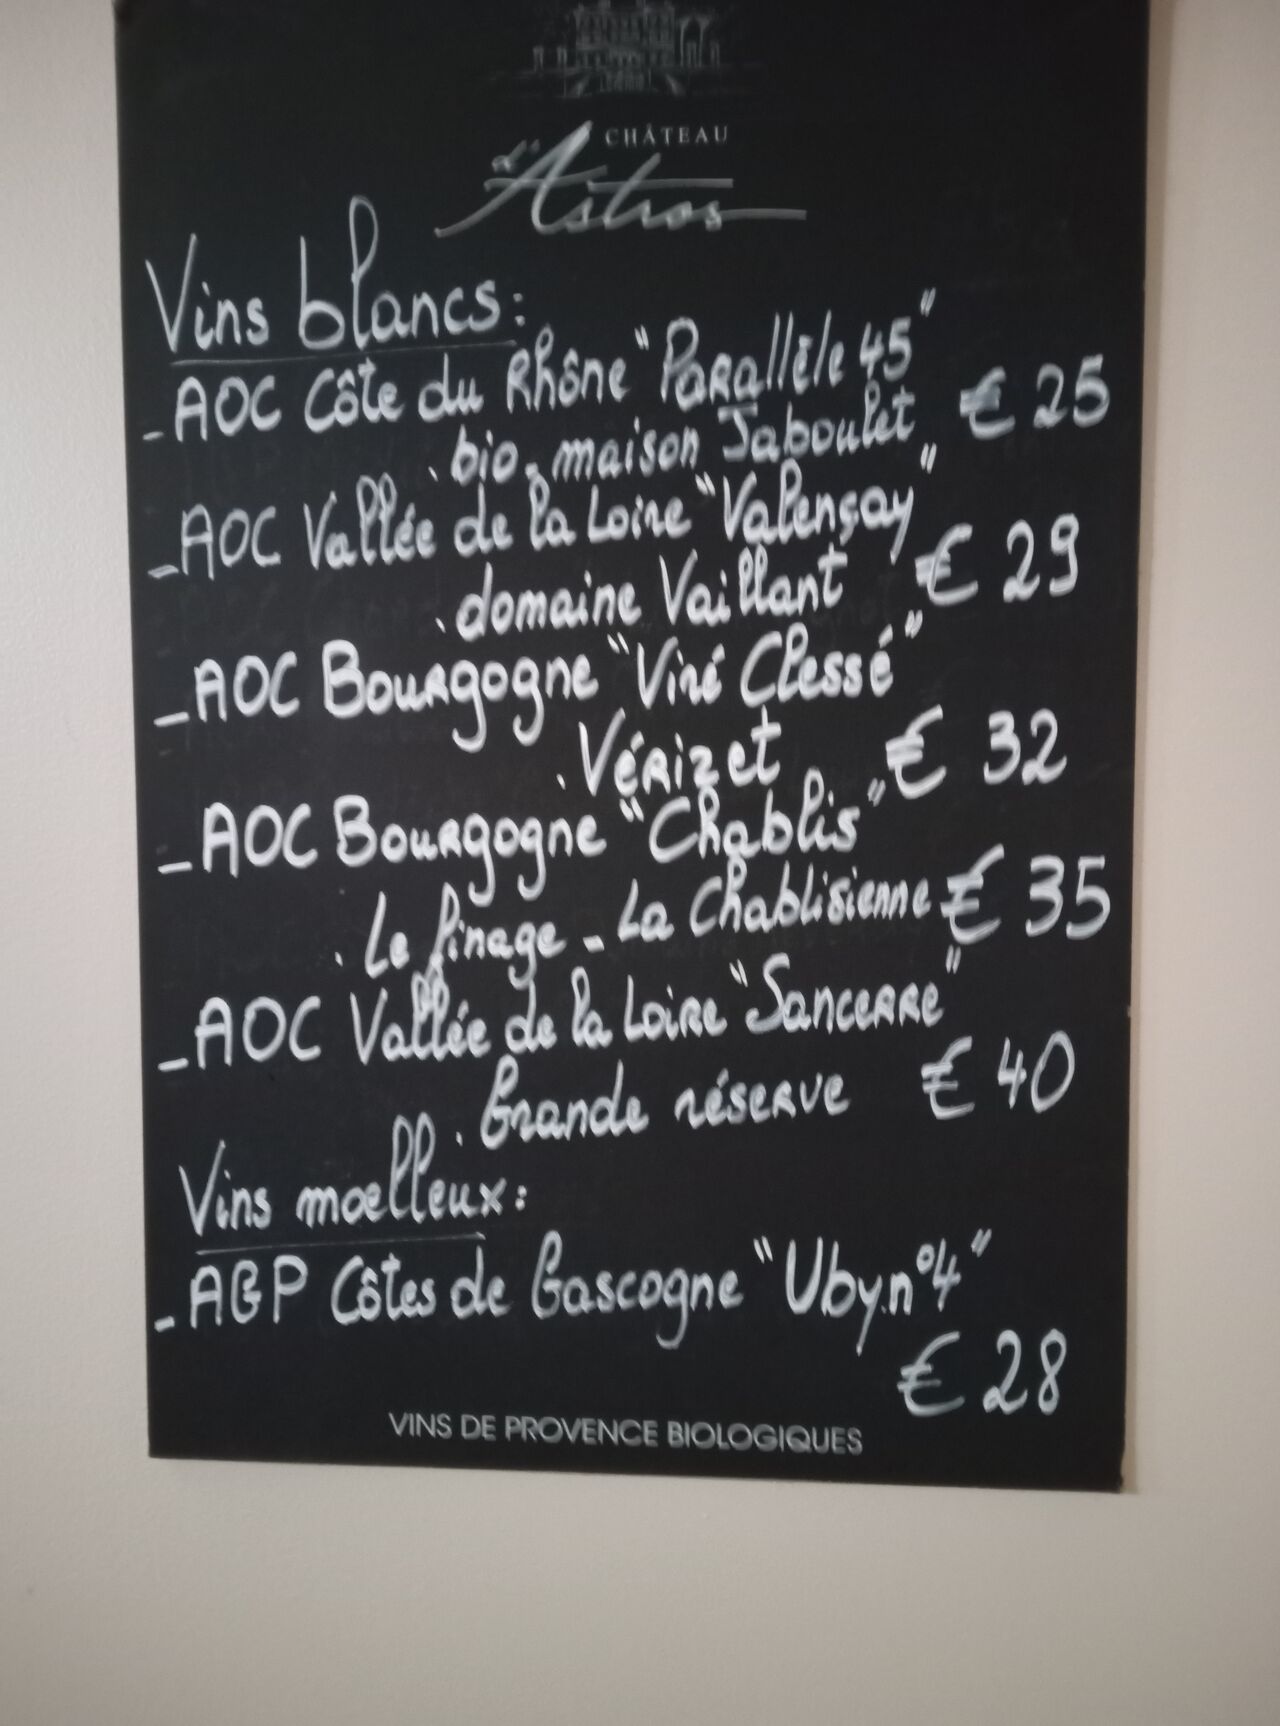 CHÂTEAU
d'Astros
Vins blancs:
- AOC Côte du Rhône "Parallèle 45"
. bio - maison Jaboulet € 25
- AOC Vallée de la Loire "Valençay"
. domaine Vaillant € 29
- AOC Bourgogne "Viré Clessé"
. Vérizet € 32
- AOC Bourgogne "Chablis"
. Le finage - La Chablisienne € 35
- AOC Vallée de la Loire "Sancerre"
. Grande réserve € 40
Vins moelleux:
- AGP Côtes de Gascogne "Uby.n°4"
€ 28
VINS DE PROVENCE BIOLOGIQUES